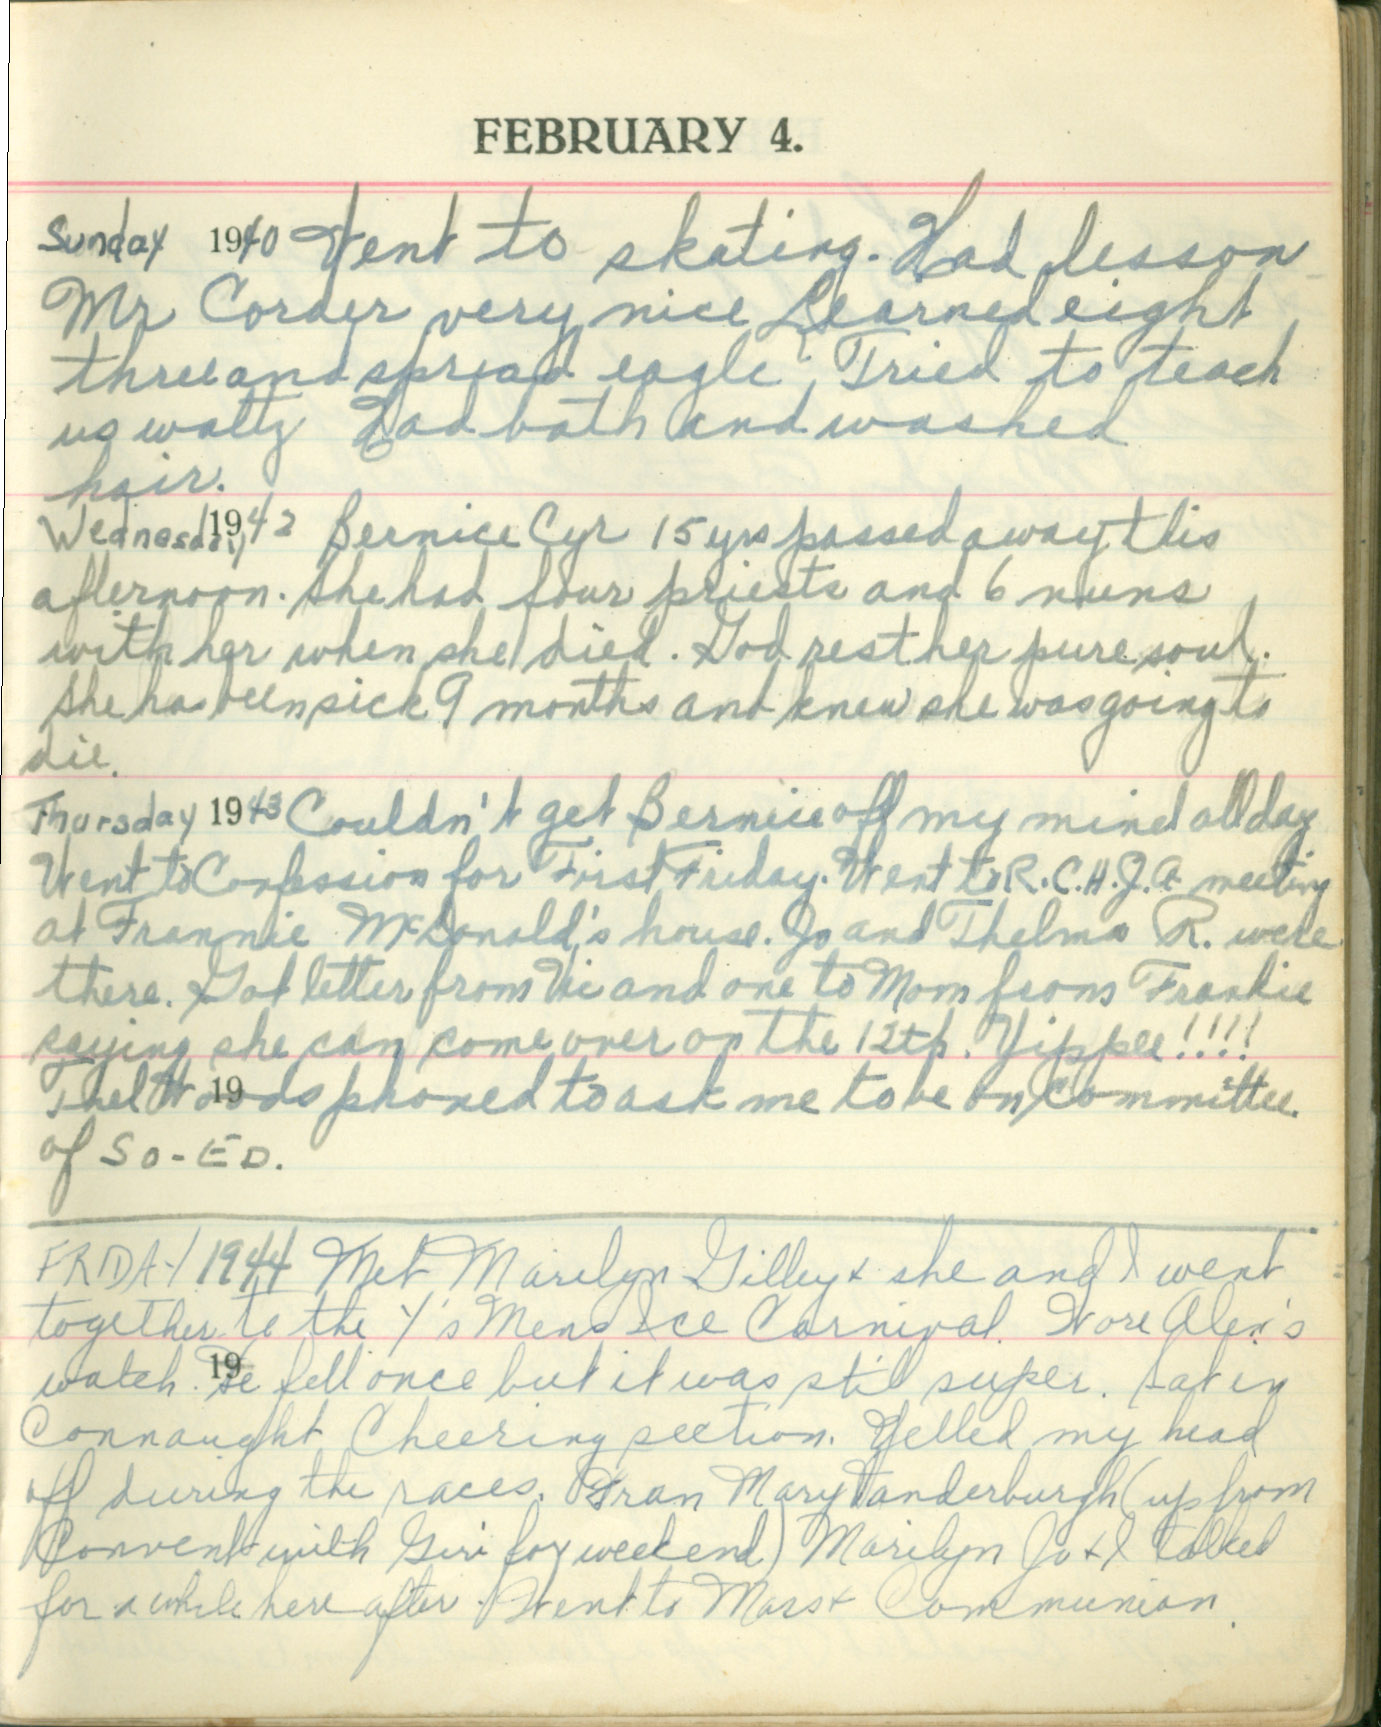 FEBRUARY 4.
Sunday 1940 Went to skating. Had lesson
Mr Corder very nice Learned eight
three and spread eagle, Tried to teach
us waltz Had bath and washed
hair.
Wednesday 1942 Bernice Cyr 15 yrs passed away this
afternoon. She had four priests and 6 nuns
with her when she died. God rest her pure soul.
She has been sick 9 months and knew she was going to
die.
Thursday 1943 Couldn't get Bernice off my mind all day
Went to Confession for First Friday. Went to R.C.H.J.A. meeting
at Frannie McDonald's house. Jo and Thelma R. were
there. Got letter from Vic and one to Mom from Frankie
saying she can come over on the 12th. Yippee!!!!
Thel Woods phoned to ask me to be on Committee
19
of SO-ED.
FRIDAY 1944 Met Marilyn Gilley & she and I went
together to the Y's Mens Ice Carnival. Wore Alex's
watch. Se fell once but it was stil super. Sat in
19
Connaught Cheering section. Yelled my head
off during the races. Fran Mary Vanderburgh (up from
Convent with Giri for weekend) Marilyn Jo & I talked
for a while here after. Went to Mass & Communion.